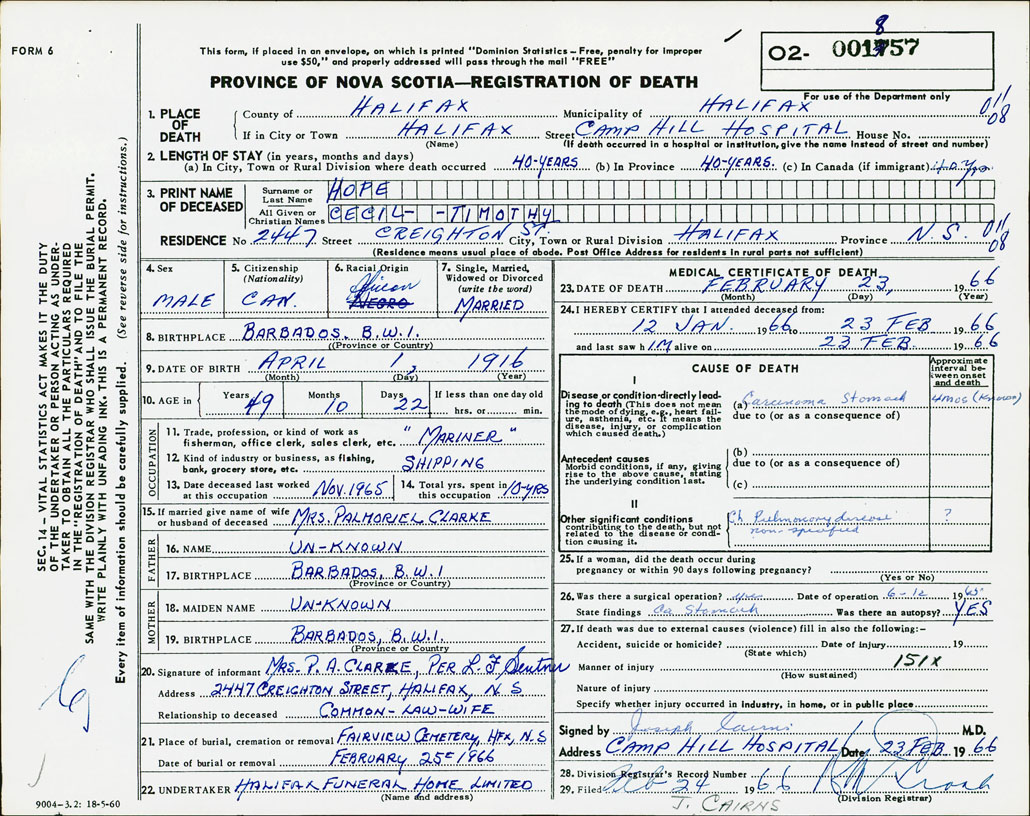 FORM 6
This form, if placed in an envelope, on which is printed "Dominion Statistics – Free, penalty for improper
use $50," and properly addressed will pass through the mail "FREE"
PROVINCE OF NOVA SCOTIA—REGISTRATION OF DEATH
02- 001757
8
For use of the Department only
1. PLACE OF DEATH
County of HALIFAX Municipality of HALIFAX 011/08
If in City or Town HALIFAX Street CAMP HILL HOSPITAL House No.
(Name) (If death occurred in a hospital or institution, give the name instead of street and number)
2. LENGTH OF STAY (in years, months and days)
(a) In City, Town or Rural Division where death occurred 40-YEARS (b) In Province 40-YEARS. (c) In Canada (if immigrant) 40 Yrs
3. PRINT NAME OF DECEASED
Surname or Last Name HOPE
All Given or Christian Names CECIL- -TIMOTHY
RESIDENCE No 2447 Street CREIGHTON ST. City, Town or Rural Division HALIFAX Province N.S. 011/08
(Residence means usual place of abode. Post Office Address for residents in rural parts not sufficient)
4. Sex
MALE
5. Citizenship
(Nationality)
CAN.
6. Racial Origin
African
NEGRO
7. Single, Married,
Widowed or Divorced
(write the word)
MARRIED
8. BIRTHPLACE BARBADOS, B.W.I.
(Province or Country)
9. DATE OF BIRTH APRIL 1, 1916
(Month) (Day) (Year)
10. AGE in Years 49 Months 10 Days 22 If less than one day old
hrs. or min.
OCCUPATION
11. Trade, profession, or kind of work as
fisherman, office clerk, sales clerk, etc. "MARINER"
12. Kind of industry or business, as fishing,
bank, grocery store, etc. SHIPPING
13. Date deceased last worked
at this occupation NOV. 1965
14. Total yrs. spent in
this occupation 10-YRS
15. If married give name of wife
or husband of deceased MRS. PALMORIEL CLARKE
FATHER
16. NAME UN-KNOWN
17. BIRTHPLACE BARBADOS, B.W.I
(Province or Country)
MOTHER
18. MAIDEN NAME UN-KNOWN
19. BIRTHPLACE BARBADOS, B.W.I.
(Province or Country)
20. Signature of informant MRS. P. A. CLARKE, PER L. F. Sentner
Address 2447 CREIGHTON STREET, HALIFAX, N S
Relationship to deceased COMMON-LAW-WIFE
21. Place of burial, cremation or removal FAIRVIEW CEMETERY, HFX, N.S
Date of burial or removal FEBRUARY 25 1966
22. UNDERTAKER HALIFAX FUNERAL HOME LIMITED
(Name and address)
MEDICAL CERTIFICATE OF DEATH
23. DATE OF DEATH FEBRUARY 23, 1966
(Month) (Day) (Year)
24. I HEREBY CERTIFY that I attended deceased from:
12 JAN. 1966 to 23 FEB 1966
and last saw hIM alive on 23 FEB. 1966
CAUSE OF DEATH
Approximate
interval be-
tween onset
and death
I
Disease or condition directly lead-
ing to death (This does not mean
the mode of dying, e.g., heart fail-
ure, asthenia, etc. It means the
disease, injury, or complication
which caused death.)
(a) Carcinoma Stomach 4 MOS (Known)
due to (or as a consequence of)
Antecedent causes
Morbid conditions, if any, giving
rise to the above cause, stating
the underlying condition last.
(b)
due to (or as a consequence of)
(c)
II
Other significant conditions
contributing to the death, but not
related to the disease or condi-
tion causing it.
Ch. Pulmonary disease ?
non-specified
25. If a woman, did the death occur during
pregnancy or within 90 days following pregnancy?
(Yes or No)
26. Was there a surgical operation? yes Date of operation 6-12 1965
State findings Ca Stomach Was there an autopsy? YES
27. If death was due to external causes (violence) fill in also the following:–
Accident, suicide or homicide? Date of injury 19
(State which)
Manner of injury 151X
(How sustained)
Nature of injury
Specify whether injury occurred in industry, in home, or in public place
Signed by Joseph Cairns M.D.
Address CAMP HILL HOSPITAL Date 23 FEB 1966
28. Division Registrar's Record Number
29. Filed Feb 24 1966
(Division Registrar)
J. CAIRNS
SEC. 14 – VITAL STATISTICS ACT MAKES IT THE DUTY
OF THE UNDERTAKER OR PERSON ACTING AS UNDER-
TAKER TO OBTAIN ALL THE PARTICULARS REQUIRED
IN THE "REGISTRATION OF DEATH" AND TO FILE THE
SAME WITH THE DIVISION REGISTRAR WHO SHALL ISSUE THE BURIAL PERMIT.
WRITE PLAINLY WITH UNFADING INK. THIS IS A PERMANENT RECORD.
Every item of information should be carefully supplied. (See reverse side for instructions.)
9004–3.2: 18-5-60